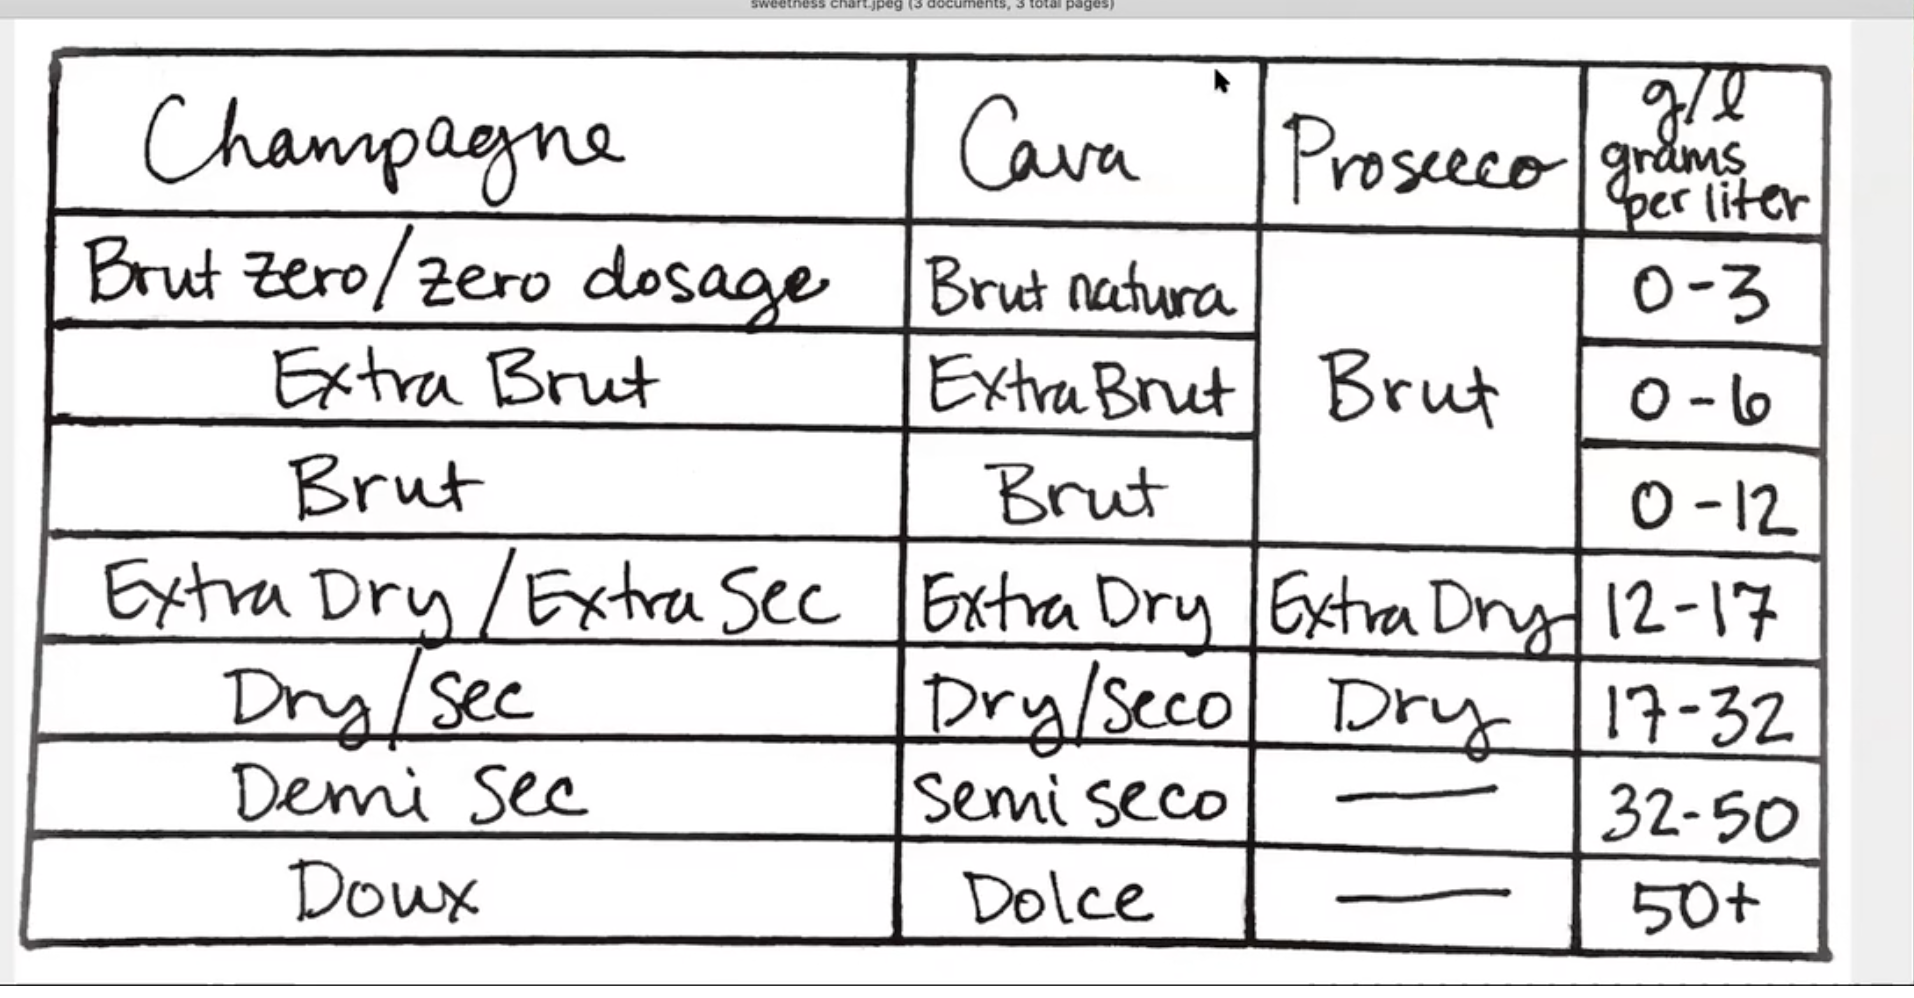 sweetness chart.jpeg (3 documents, 3 total pages)
Champagne Cava Prosecco g/l grams per liter
Brut zero/zero dosage Brut natura 0-3
Extra Brut Extra Brut Brut 0-6
Brut Brut 0-12
Extra Dry/Extra Sec Extra Dry Extra Dry 12-17
Dry/Sec Dry/Seco Dry 17-32
Demi Sec Semi seco — 32-50
Doux Dolce — 50+